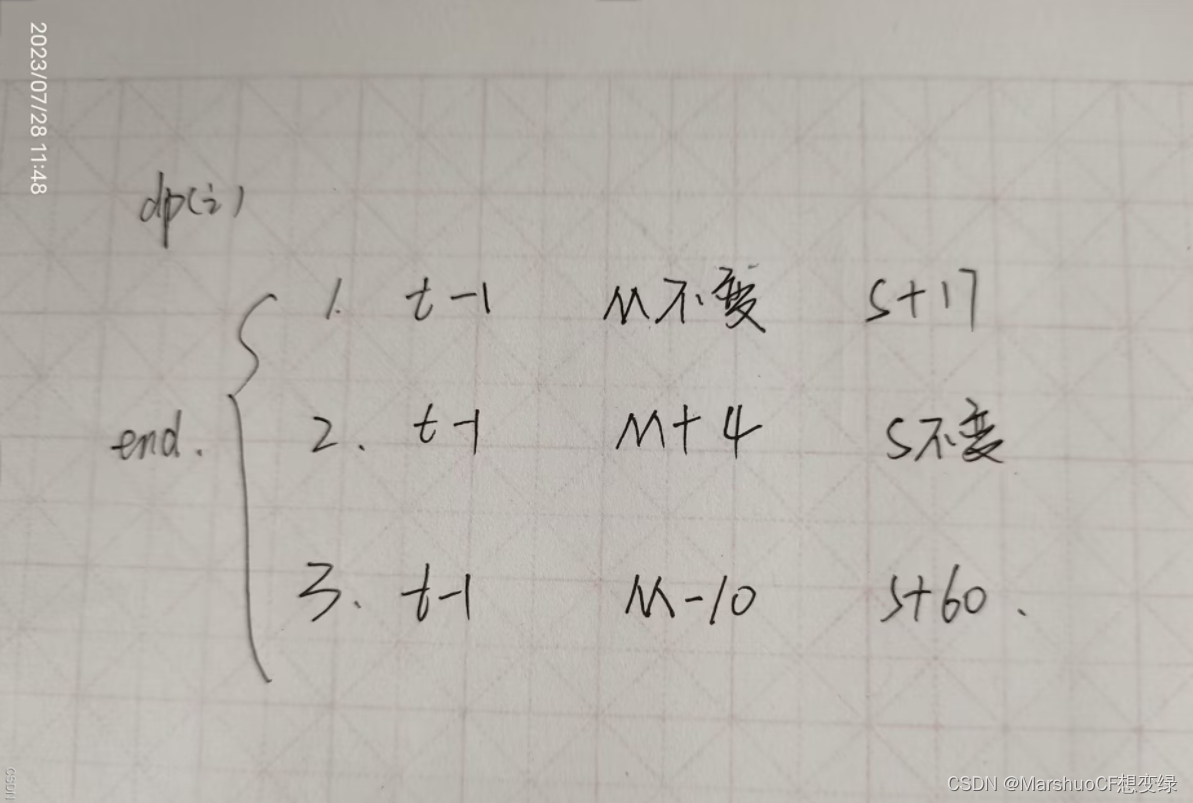 2023/07/28 11:48
dp(i)
1. t-1 M不变 S+17
end. 2. t-1 M+4 S不变
3. t-1 M-10 S+60.
CSDN @MarshuoCF想变绿
CSDN